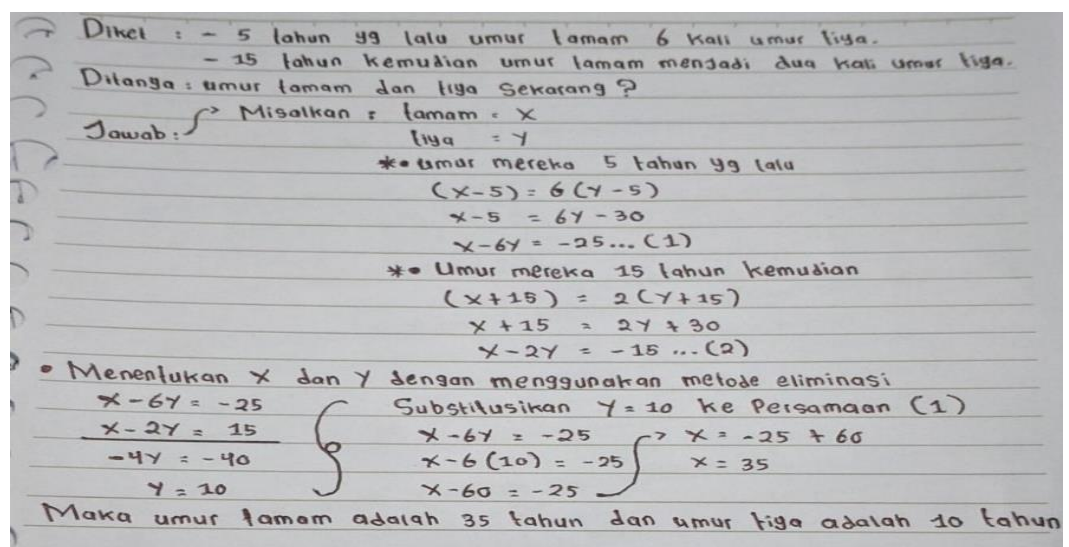 Diket : - 5 tahun yg lalu umur tamam 6 kali umur tiya.
- 15 tahun kemudian umur tamam menjadi dua kali umur tiya.
Ditanya : umur tamam dan tiya sekarang ?
Jawab : Misalkan : tamam = x
tiya = y
* • umur mereka 5 tahun yg lalu
(x-5) = 6 (y-5)
x-5 = 6y - 30
x-6y = -25 ... (1)
* • Umur mereka 15 tahun kemudian
(x+15) = 2(y+15)
x + 15 = 2y + 30
x-2y = -15 ... (2)
• Menentukan x dan y dengan menggunakan metode eliminasi
x-6y = -25
x-2y = 15
-4y = -40
y = 10
Substitusikan y = 10 ke Persamaan (1)
x-6y = -25
x-6 (10) = -25
x-60 = -25
x = -25 + 60
x = 35
Maka umur tamam adalah 35 tahun dan umur tiya adalah 10 tahun